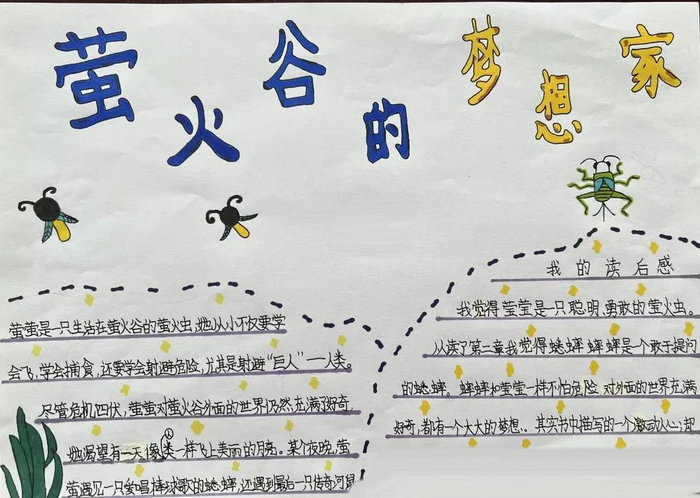 萤火谷的梦想家
萤萤是一只生活在萤火谷的萤火虫,她从小不仅要学
会飞,学会捕食,还要学会躲避危险,尤其是躲避“巨人”——人类。
尽管危机四伏,萤萤对萤火谷外面的世界仍然充满好奇,
她渴望有一天像人类一样飞上美丽的月亮。某个夜晚,萤
萤遇见一只爱唱棒球歌的蟋蟀,还遇到最后一只传奇
我的读后感
我觉得莹莹是一只聪明,勇敢的萤火虫。
从读了第二章我觉得蟋蟀蟀蟀是个敢于提问
的蟋蟀。蟀蟀和莹莹一样不怕危险对外面的世界充满
好奇,都有一个大大的梦想.。其实书中描写的一个激动人心,却